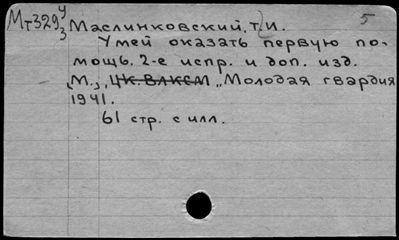 Мт329 У/3 Маслинковский, Т.И. 5
Умей оказать первую по-
мощь. 2-е испр. и доп. изд.
„М.", ЦК. ВЛКСМ „Молодая гвардия
1941.
61 стр. с илл.